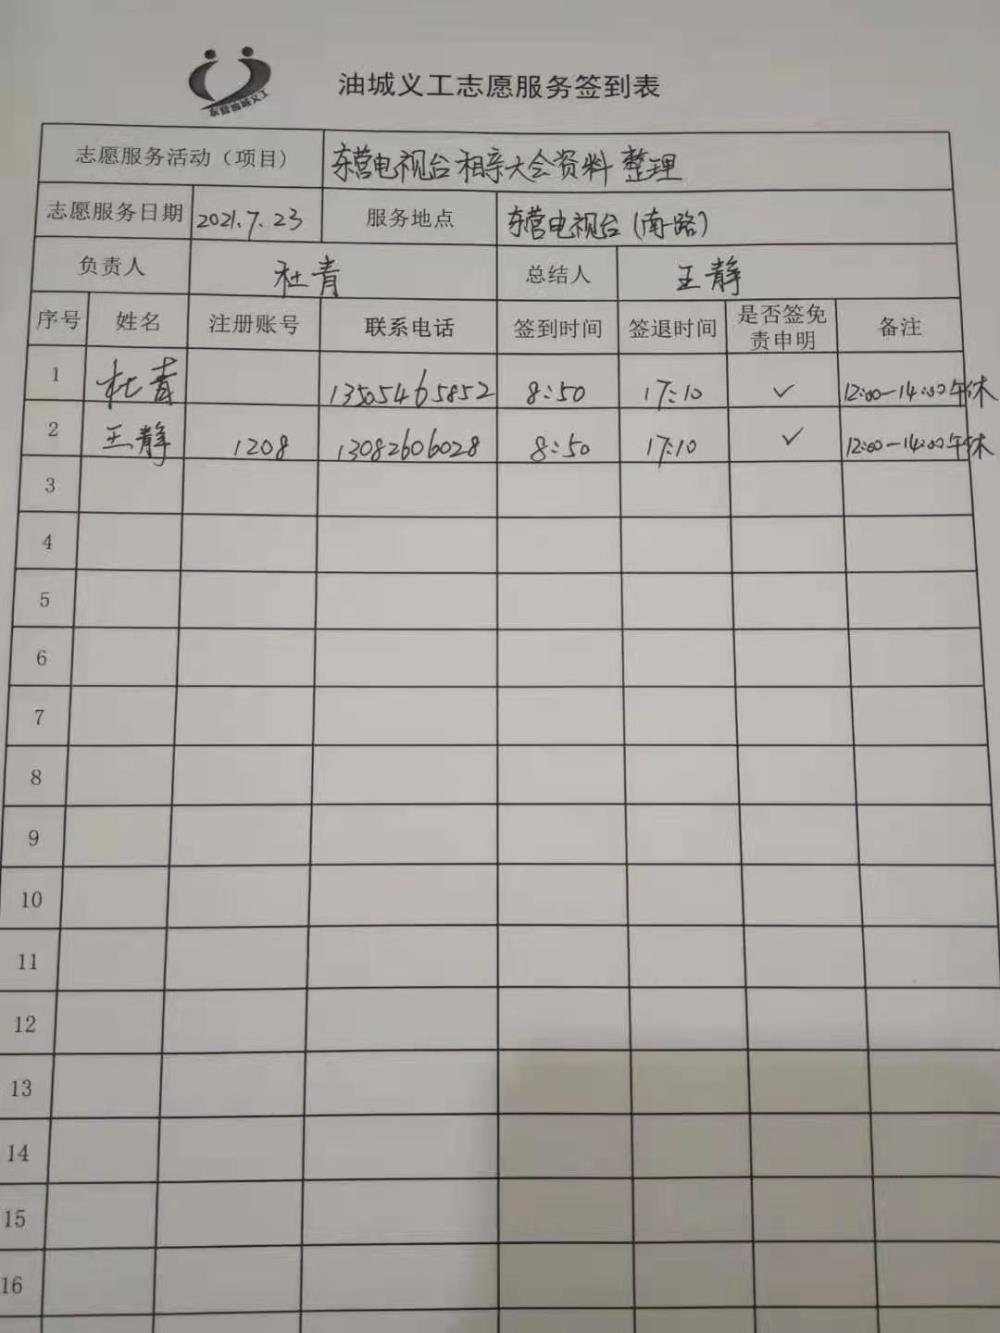 东营油城义工
油城义工志愿服务签到表
志愿服务活动（项目） 东营电视台相亲大会资料 整理
志愿服务日期 2021.7.23 服务地点 东营电视台（南一路）
负责人 杜青 总结人 王静
序号 姓名 注册账号 联系电话 签到时间 签退时间 是否签免责申明 备注
1 杜青 13505465852 8:50 17:10 ✓ 12:00—14:00午休
2 王静 1208 13082606028 8:50 17:10 ✓ 12:00—14:00午休
3
4
5
6
7
8
9
10
11
12
13
14
15
16